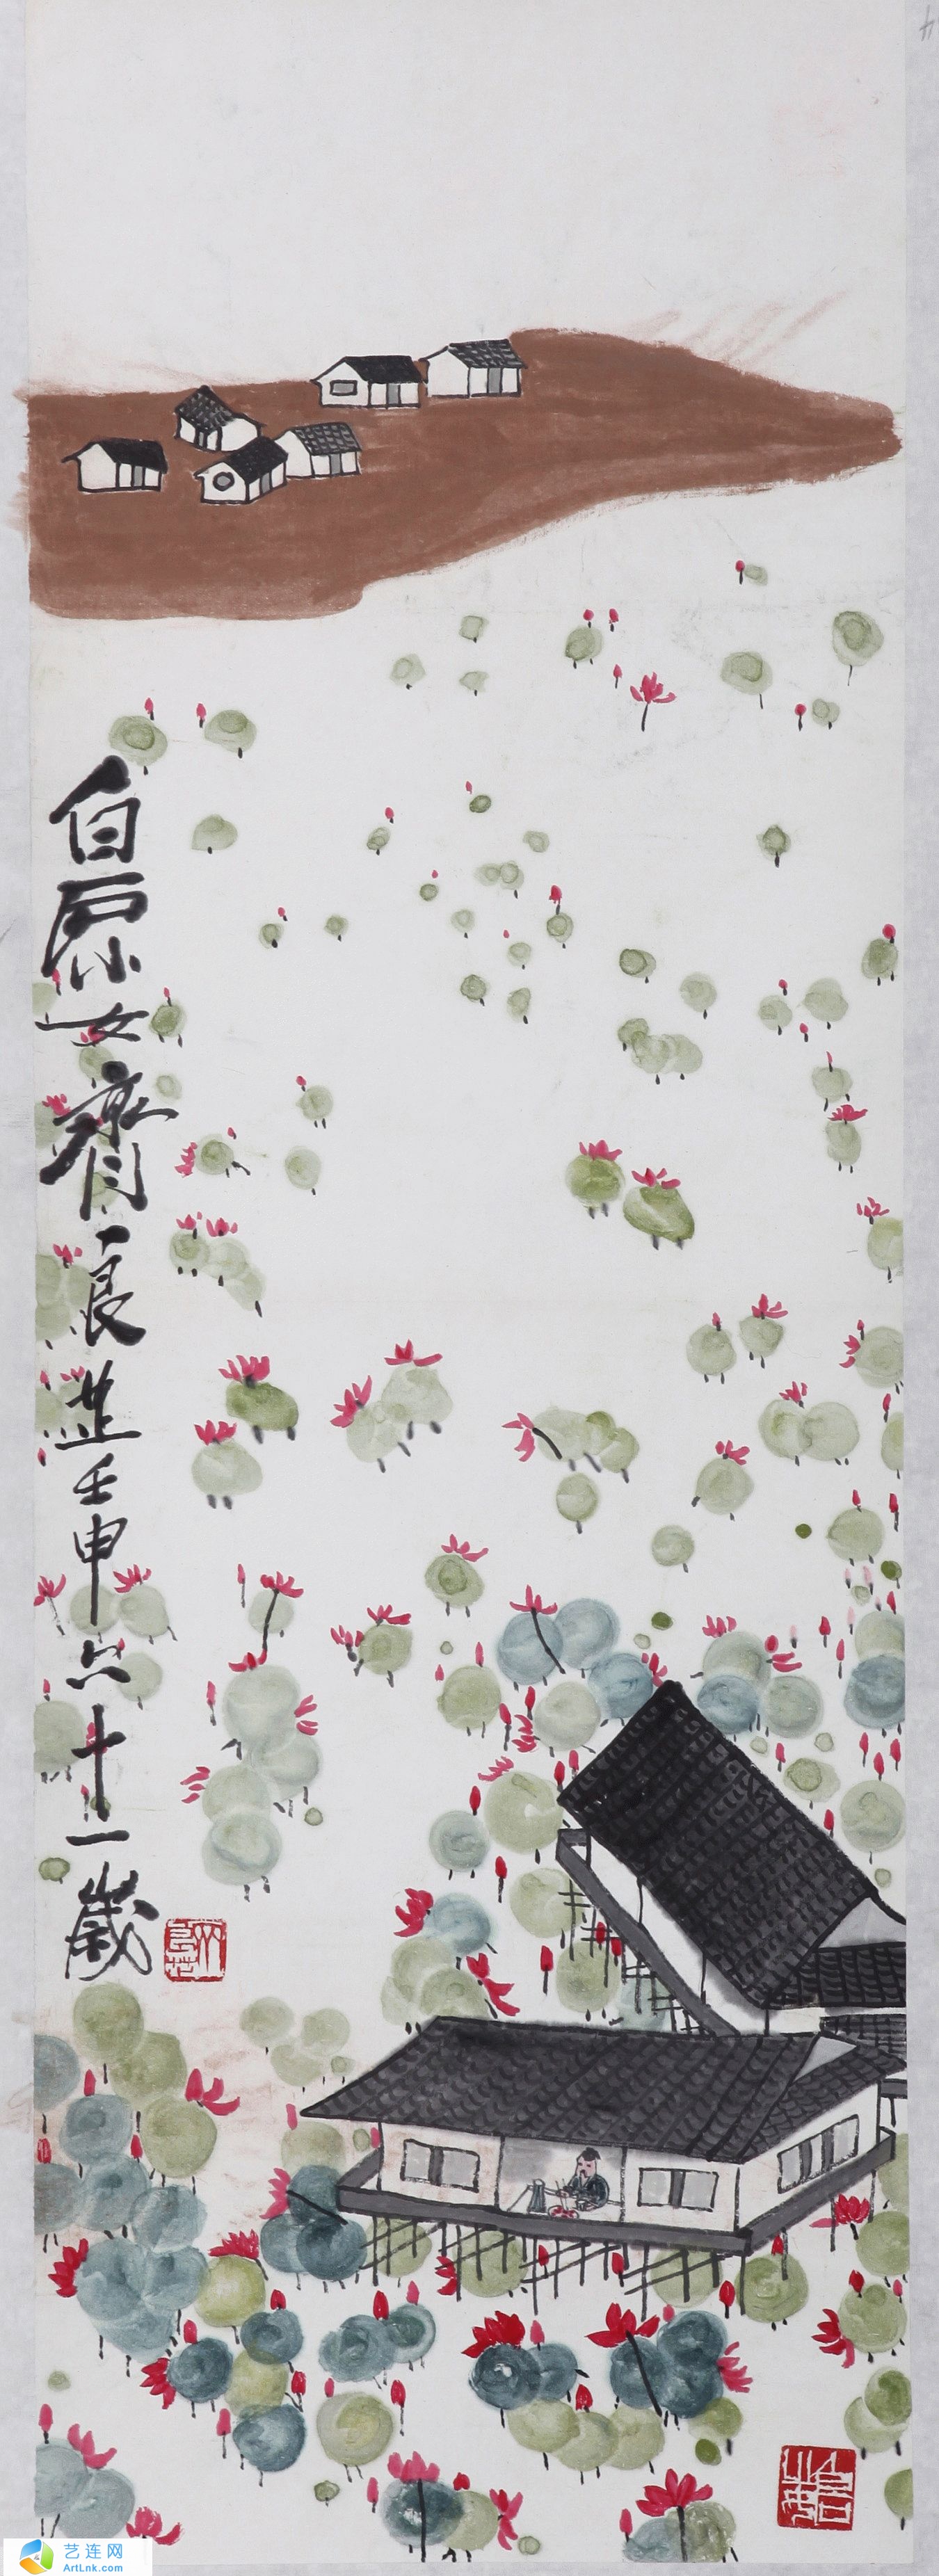 白石小女齊良芷壬申六十一歲
艺连网
ArtLnk.com